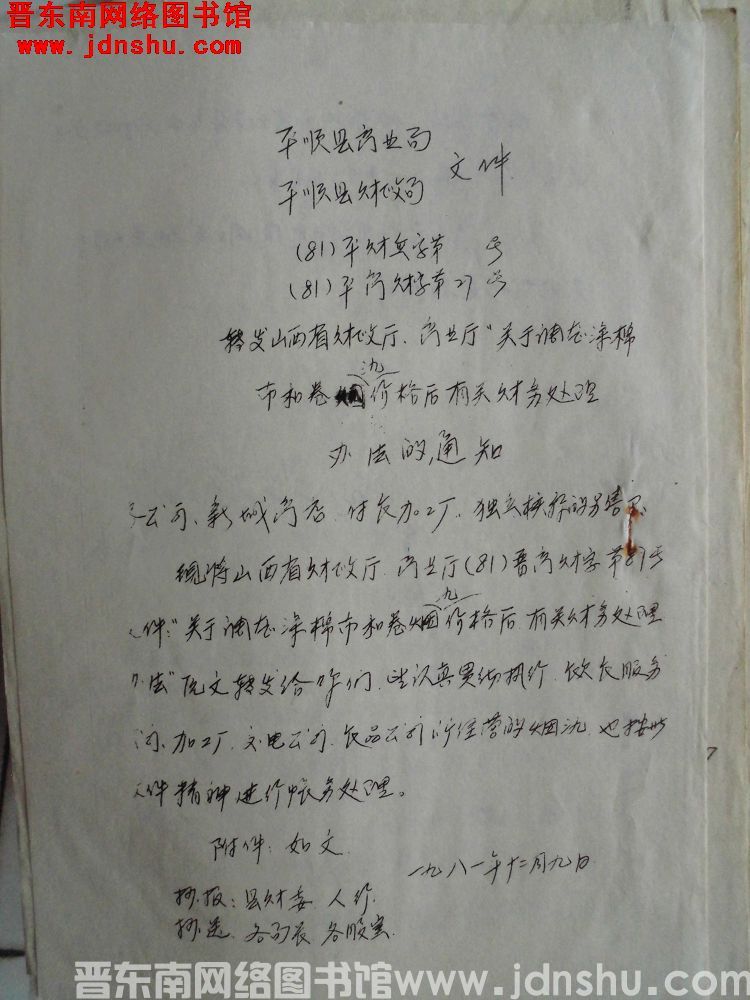 晋东南网络图书馆
www.jdnshu.com
平顺县商业局
平顺县财政局 文件
(81)平财企字第 号
(81)平商财字第27号
转发山西省财政厅、商业厅"关于调整涤棉
布和卷烟氿价格后有关财务处理
办法的通知
公司、新城商店、付食加工厂、独立核祘的另售
现将山西省财政厅、商业厅(81)晋商财字第87号
件"关于调整涤棉布和卷烟九价格后有关财务处理
办法"原文转发给你们,望认真贯彻执行,饮食服务
司、加工厂、交电公司、食品公司所经营的烟氿,也按此
文件精神进行帐务处理。
附件:如文
一九八一年十二月九日
抄报:县财委、人行
抄送、各局长各股室
晋东南网络图书馆www.jdnshu.com
7